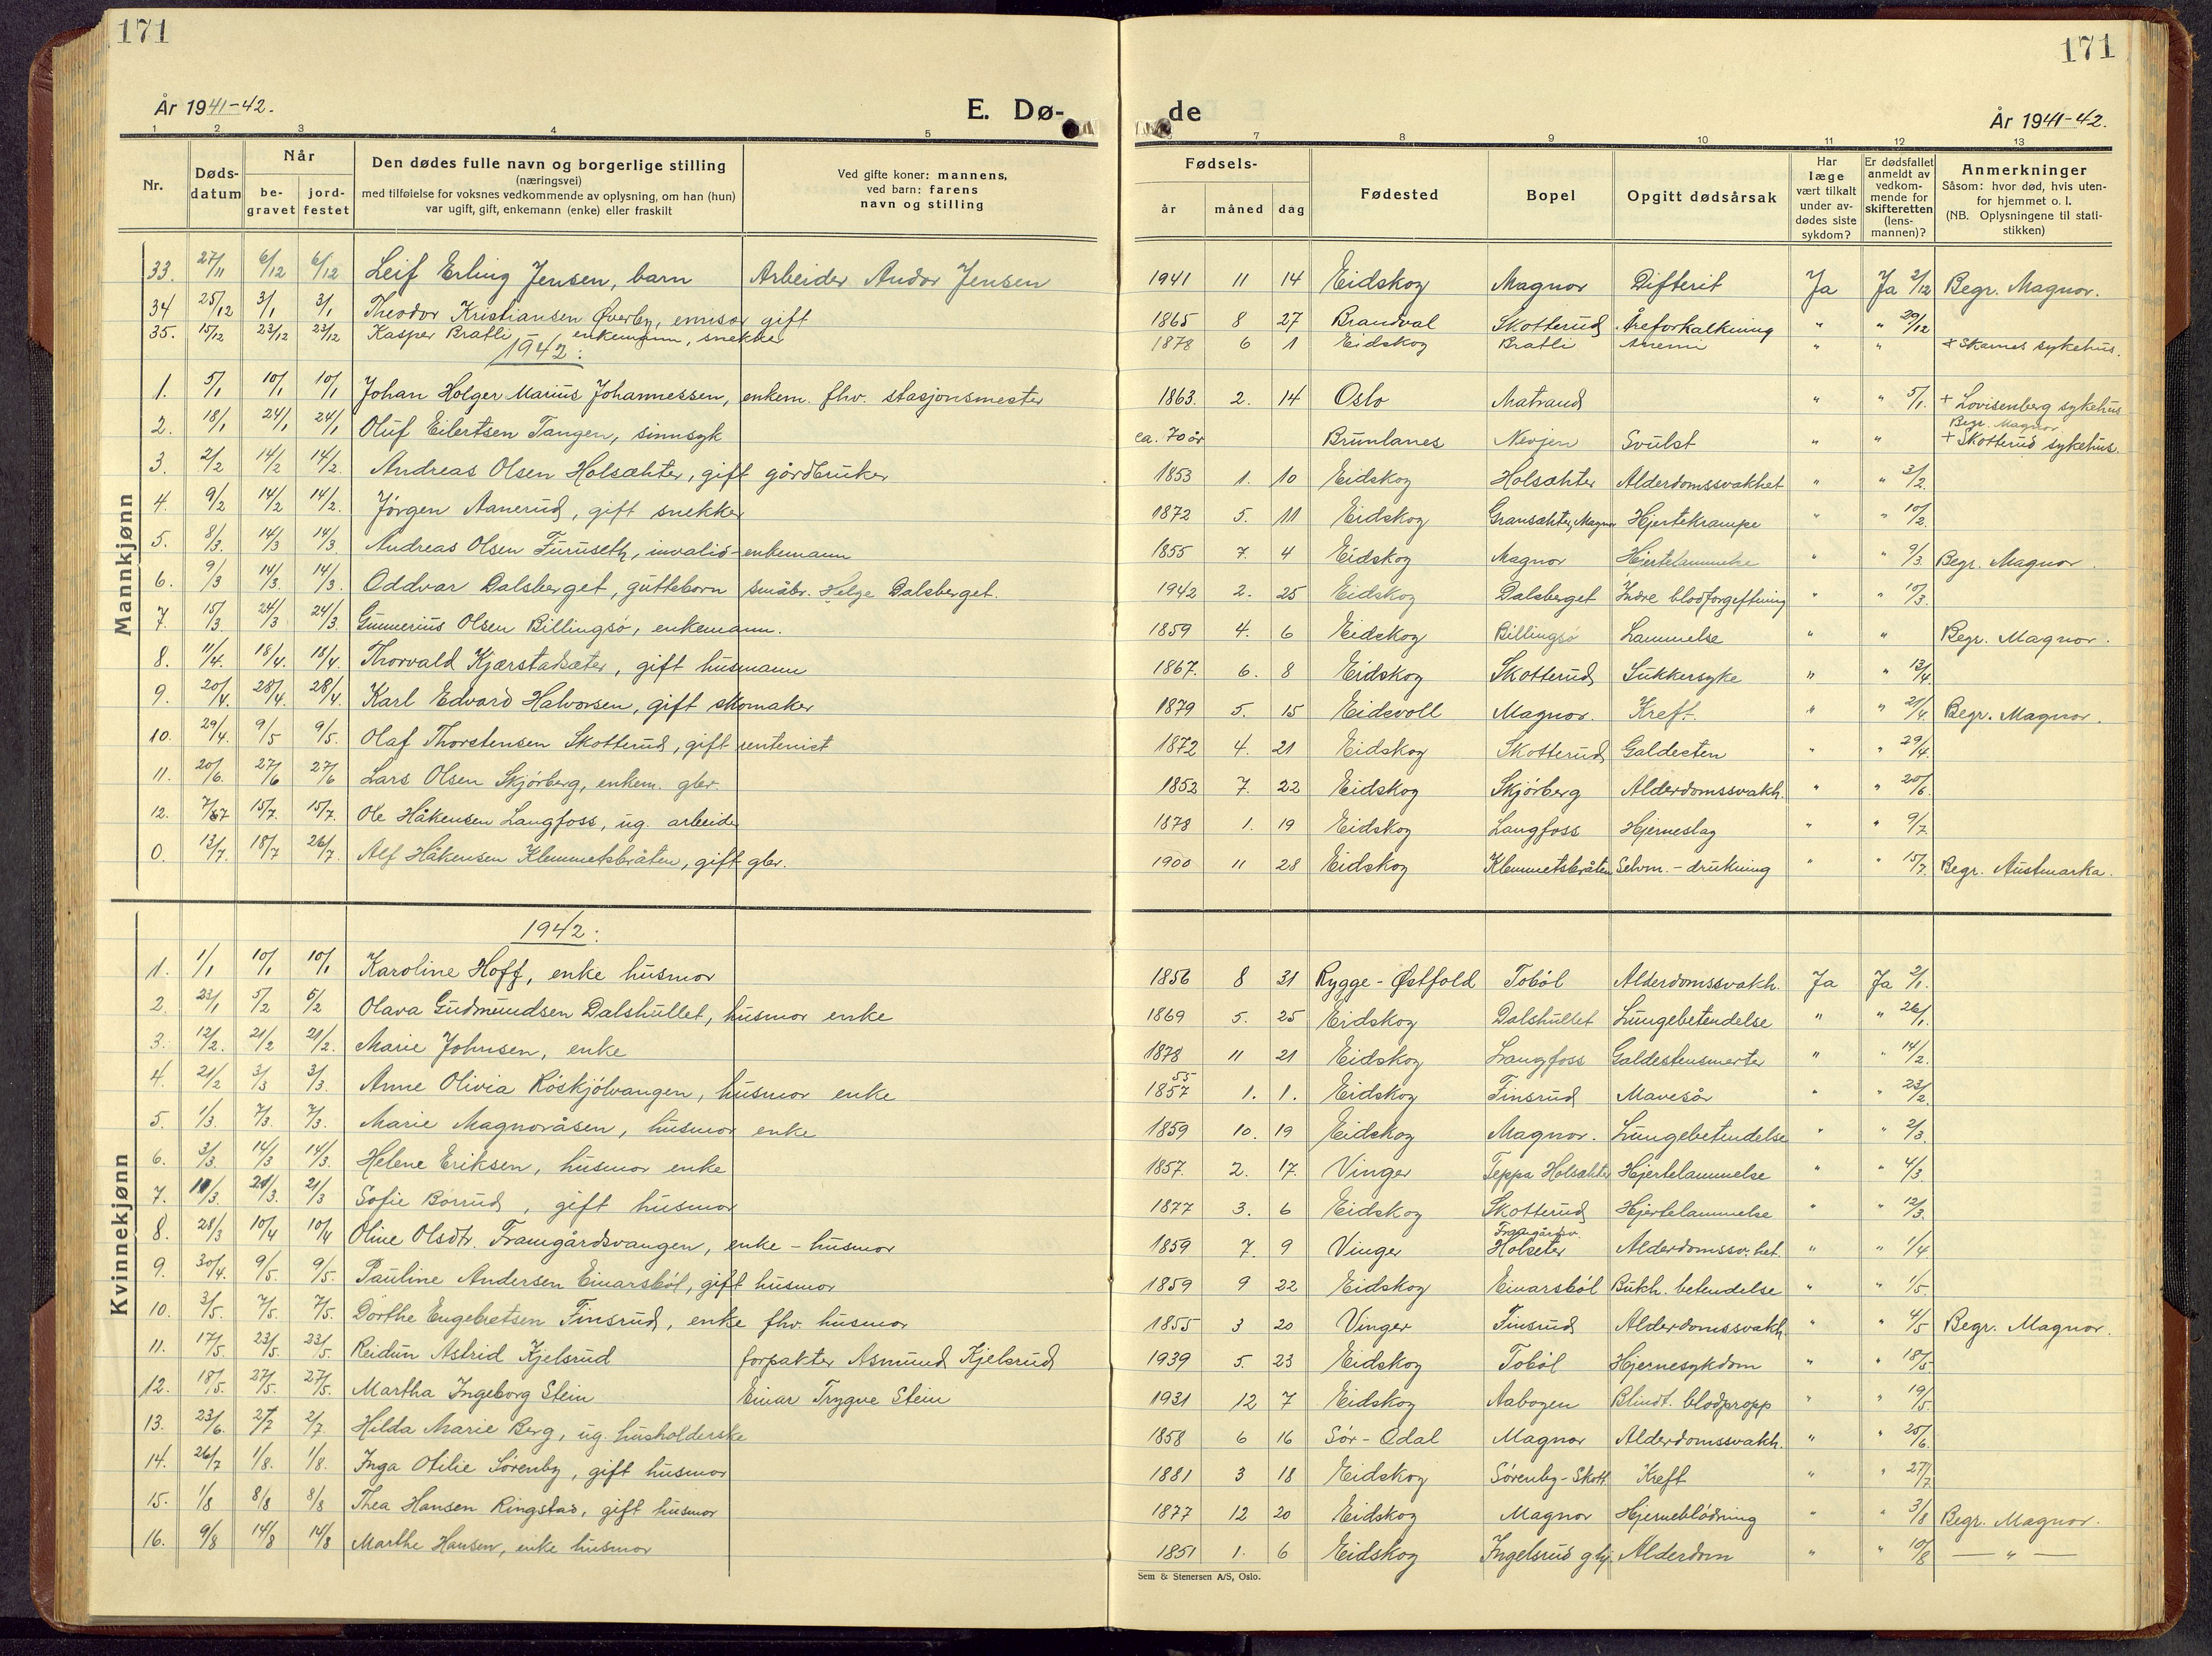 171
171
År 1941-42.
E. Dø-
de
År 1941-42.
1 2 3 4 5 7 8 9 10 11 12 13
Nr.
Døds-datum
Når
be-gravet
jord-festet
Den dødes fulle navn og borgerlige stilling
(næringsvei)
med tilføielse for voksnes vedkommende av oplysning, om han (hun)
var ugift, gift, enkemann (enke) eller fraskilt
Ved gifte koner: mannens,
ved barn: farens
navn og stilling
Fødsels-
år måned dag
Fødested
Bopel
Opgitt dødsårsak
Har læge vært tilkalt under av-dødes siste sykdom?
Er dødsfallet anmeldt av vedkom-mende for skifteretten (lens-mannen)?
Anmerkninger
Såsom: hvor død, hvis uten-
for hjemmet o. l.
(NB. Oplysningene til stati-
stikken)
Mannkjønn
33. 27/11 6/12 6/12 Leif Erling Jensen, barn Arbeider Andor Jensen 1941 11 14 Eidskog Magnor Difterit Ja Ja 2/12 Begr. Magnor.
34 25/12 3/1 3/1 Theodor Kristiansen Øverby, emisær gift 1865 8 27 Brandval Skotterud Åreforkalkning " " 29/12
35. 15/12 23/12 23/12 Kasper Bratli – enkemann, snekker 1878 6 1 Eidskog Bratli Anemi " " + Skarnes sykehus.
1942:
1. 5/1 10/1 10/1 Johan Holger Marius Johannessen, enkem. fhv. stasjonsmester 1863. 2. 14 Oslo Matrand " " 5/1. + Lovisenberg sykehus
2. 18/1 24/1 24/1 Oluf Eilertsen Tangen, sinnsyk ca. 70 år Brunlanes Nevjen Svulst " " Begr. Magnor. + Skotterud sykehus.
3. 2/2 14/2 14/2. Andreas Olsen Holsæhter, gift gårdbruker 1853 1. 10 Eidskog Holsæhter Alderdomssvakhet " " 3/2.
4. 9/2 14/2 14/2. Jörgen Aanerud, gift snekker 1872 5. 11 Eidskog Gransæhter, Magnor Hjertekrampe " " 10/2.
5. 8/3. 14/3 14/3. Andreas Olsen Furuseth, invalid-enkemann 1855 7. 4 Eidskog Magnor Hjertelammelse " " 9/3. Begr. Magnor.
6. 9/3 14/3. 14/3. Oddvar Dalsberget, guttebarn småbr. Helge Dalsberget. 1942 2. 25 Eidskog Dalsberget Indre blodforgiftning " " 10/3.
7. 15/3. 24/3 24/3. Gunnerius Olsen Billingsö, enkemann. 1859 4. 6 Eidskog Billingsö Lammelse " " Begr. Magnor.
8. 11/4. 18/4. 18/4. Thorvald Kjærstadsæter, gift husmann 1867. 6. 8 Eidskog Skotterud Sukkersyke " " 13/4.
9. 20/4. 28/4. 28/4. Karl Edvard Halvorsen, gift skomaker 1879 5. 15 Eidsvoll Magnor. Kreft. " " 21/4. Begr. Magnor.
10. 29/4. 9/5 9/5. Olaf Thorstensen Skotterud, gift rentenist 1872 4. 21 Eidskog Skotterud Galdesten " " 29/4.
11. 20/6. 27/6 27/6 Lars Olsen Skjörberg, enkem. gbr. 1852 7. 22 Eidskog Skjörberg Alderdomssvakh. " " 20/6.
12. 7/7 15/7. 15/7. Ole Håkensen Langfoss, ug. arbeider 1878 1. 19 Eidskog Langfoss Hjerneslag " " 9/7
0. 13/7. 18/7 26/7. Alf Håkensen Klemmetsbråten, gift gbr. 1900 11 28 Eidskog Klemmetsbråten Selvm. – drukning " " 15/7. Begr. Austmarka.
Kvinnekjønn
1942:
1. 1/1 10/1 10/1 Karoline Hoff, enke husmor 1856 8 31 Rygge - Østfold Toböl Alderdomssvakh. Ja Ja 2/1.
2. 23/1 5/2 5/2 Olava Gudmundsen Dalshullet, husmor enke 1869 5. 25 Eidskog Dalshullet Lungebetendelse " " 26/1.
3. 12/2. 21/2 21/2. Marie Johnsen, enke 1878 11 21 Eidskog Langfoss Galdestensmerter " " 14/2.
4. 21/2 3/3 3/3. Anne Olivia Röskjölvangen, husmor enke 1857 55 1. 1. Eidskog Finsrud Mavesår " " 23/2.
5. 1/3. 7/3. 7/3. Marie Magnoråsen, husmor enke 1859 10. 19 Eidskog Magnor. Lungebetendelse " " 2/3.
6. 3/3. 14/3 14/3. Helene Eriksen, husmor enke 1857. 2. 17. Vinger Teppa Holsæhter Hjertelammelse " " 4/3.
7. 10/3. 21/3. 21/3 Sofie Borrud, gift husmor 1877 3. 6 Eidskog Skotterud Hjertelammelse " " 12/3.
8. 28/3 10/4 10/4 Oline Olsdtr. Framgårdsvangen, enke – husmor 1859 7. 9 Vinger Framgårdsv. Holseter Alderdomssv.het. " " 1/4
9. 30/4. 9/5. 9/5. Pauline Andersen Einarsböl, gift husmor 1859 9 22 Eidskog Einarsböl Bukh. betendelse " " 1/5.
10. 3/5. 7/5. 7/5. Dorthe Engebretsen Finsrud, enke fhv. husmor 1855 3 20 Vinger Finsrud Alderdomssvakh. " " 4/5 Begr. Magnor.
11. 17/5 23/5. 23/5. Reidun Astrid Kjelsrud forpakter Asmund Kjelsrud 1939 5. 23 Eidskog Toböl Hjernesykdom " " 18/5.
12. 18/5. 27/5. 27/5. Martha Ingeborg Stein Einar Trygve Stein 1931 12 7 Eidskog Aabogen Blindt. blodpropp " " 19/5.
13. 23/6. 2/7 2/7. Hilda Marie Berg, ug. husholderske 1858 6 16 Sör - Odal Magnor Alderdomssvakh. " " 25/6.
14. 26/7 1/8. 1/8. Inga Otilie Sörenby, gift husmor 1881 3 18 Eidskog Sörenby - Skott. Kreft " " 27/7.
15. 1/8 8/8 8/8 Thea Hansen Ringstad, gift husmor 1877 12 20 Eidskog Magnor Hjerneblödning " " 3/8 Begr. Magnor.
16. 9/8 14/8 14/8 Marthe Hansen, enke husmor 1851 1. 6 Eidskog Ingelsrud g.hj. Alderdom " " 10/8 — " —
Sem & Stenersen A/S, Oslo.